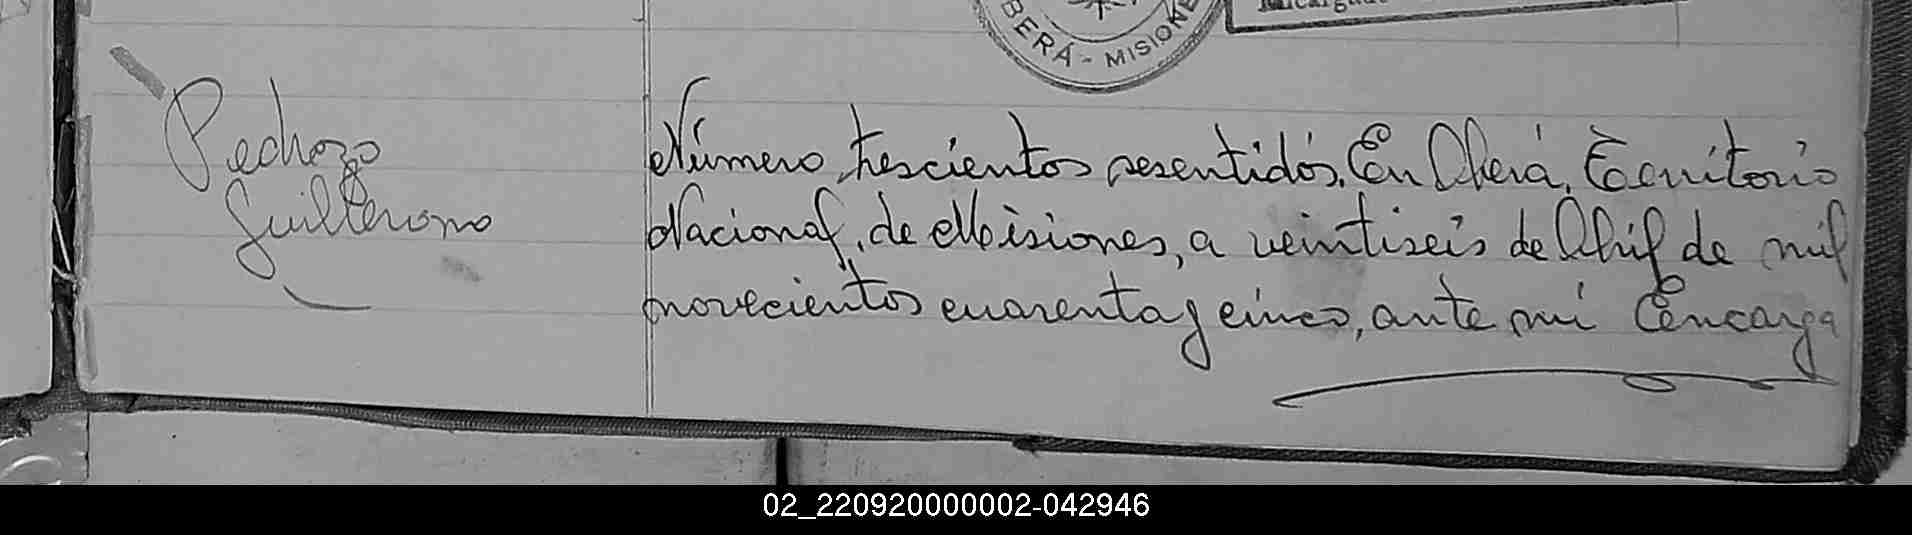 BERÁ - MISIONE
Encargado
Pedrozo
Guillermo
Número trescientos sesentidós. En Oberá, Territorio
Nacional, de Misiones, a veintiseis de Abril de mil
novecientos cuarenta y cinco, ante mi Encarga
02_220920000002-042946